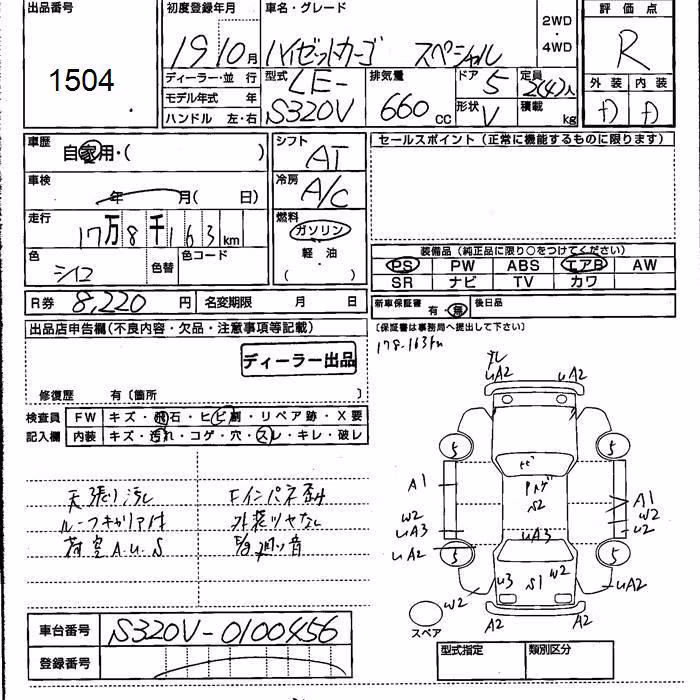 出品番号
1504
初度登録年月
19 10月
車名・グレード
ハイゼットカーゴ スペシャル
2WD
・
4WD
評価点
R
外装 内装
ディーラー・並 行
モデル年式 年
ハンドル 左・右
型式
LE-
S320V
排気量
660 cc
ドア 5
形状 V
定員
2(4)人
積載
kg
車歴
自家用・( )
車検
年 月( 日)
走行
17万8千163km
色
シロ
色替
色コード
シフト
AT
冷房
A/C
燃料
ガソリン
軽・油
( )
セールスポイント(正常に機能するものに限ります)
装備品(純正品に限り○をつけてください)
PS PW ABS エアB AW
SR ナビ TV カワ
R券 8,220 円
名変期限 月 日
新車保証書
有・無
後日品
(保証書は事務局へ提出して下さい)
178.163km
出品店申告欄(不良内容・欠品・注意事項等記載)
ディーラー出品
修復歴 有〔箇所 〕
検査員
記入欄
FW キズ・飛石・ヒビ割・リペア跡・X要
内装 キズ・汚れ・コゲ・穴・スレ・キレ・破レ
天張り汚し
ルーフキャリア付
荷室A.U.S
Fインパネ歪み
外装ツヤなし
uA2 uA2
5 5
A1
S2
A1
W2
W2
uA3
uA3
uA2
5 5
u3 S1 W2
uA2
W2
A2 A2
スペア
車台番号 S320V-0100456
登録番号
型式指定 類別区分